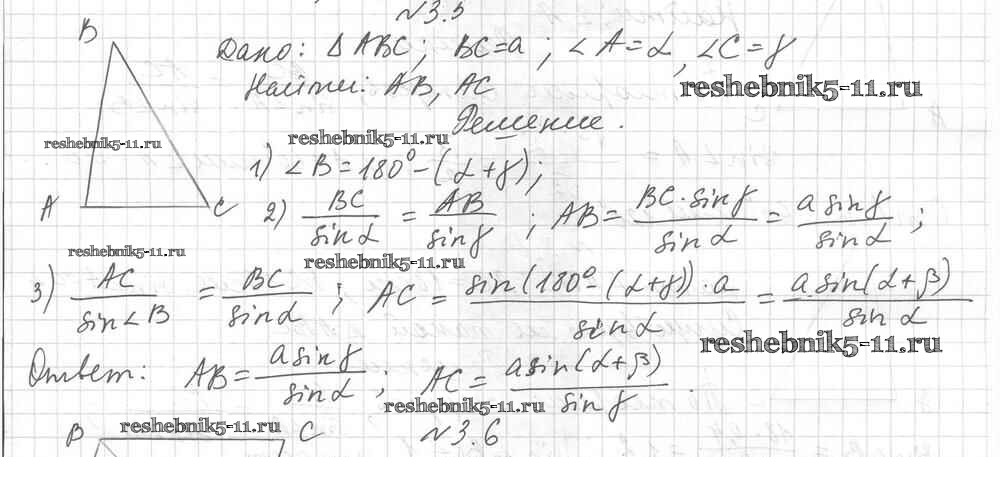 №3.5
B
Дано: Δ ABC; BC=a; ∠A=α, ∠C=γ
Найти: AB, AC
reshebnik5-11.ru
Решение.
reshebnik5-11.ru
reshebnik5-11.ru
1) ∠B=180°-(α+γ);
A
C
2) BC/sinα = AB/sinγ ; AB = BC·sinγ/sinα = a sinγ/sinα ;
reshebnik5-11.ru
reshebnik5-11.ru
3) AC/sin∠B = BC/sinα ; AC = sin(180°-(α+γ))·a/sinα = a sin(α+β)/sinα
reshebnik5-11.ru
Ответ: AB = a sinγ/sinα ; AC = a sin(α+β)/sinγ .
reshebnik5-11.ru
reshebnik5-11.ru
B
C
№3.6